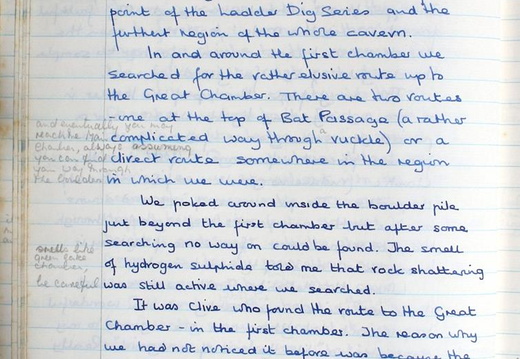 point of the Ladder Dig Series and the
furthest region of the whole cavern.
In and around the first chamber we
searched for the rather elusive route up to
the Great Chamber. There are two routes
- one at the top of Bat Passage (a rather
complicated way through a ruckle) or a
direct route somewhere in the region
in which we were.
We poked around inside the boulder pile
just beyond the first chamber but after some
searching no way on could be found. The smell
of hydrogen sulphide told me that rock shattering
was still active where we searched.
It was Clive who found the route to the Great
Chamber - in the first chamber. The reason why
we had not noticed it before was because the
and eventually you may
reach the
chamber, always assuming
you can find
your way through
the boulders
smells like
chamber,
be careful